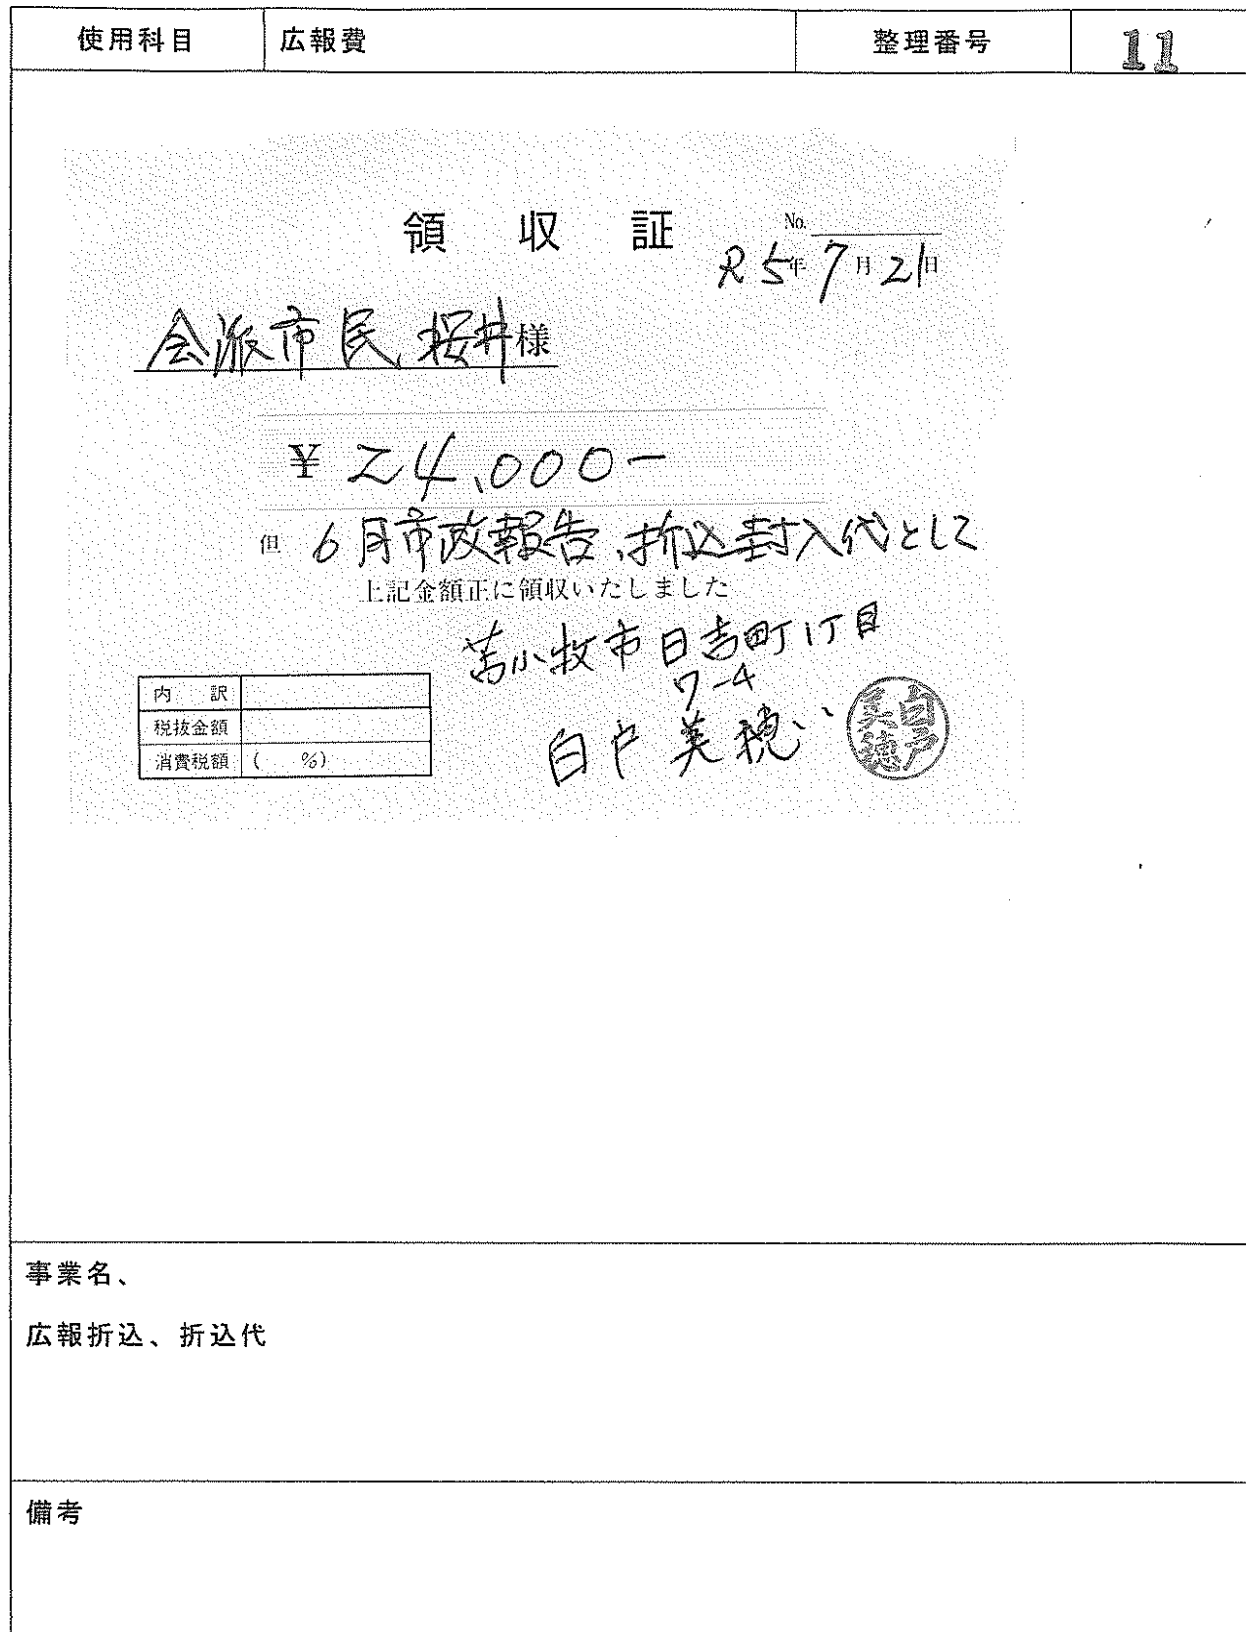 使用科目 広報費 整理番号 11
領収証
No.
R5年7月21日
会派市民、桜井様
¥24,000-
但 6月市政報告、折込封入代として
上記金額正に領収いたしました
苫小牧市日吉町1丁目
7-4
白戸美穂
白戸美穂
内訳
税抜金額
消費税額 ( %)
事業名、
広報折込、折込代
備考